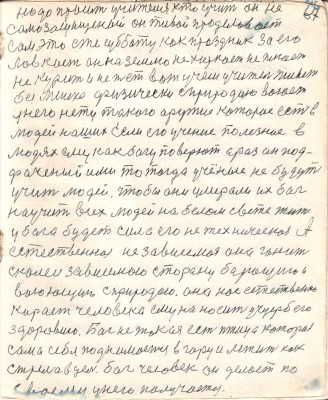 67
надо просит учителя кто учит он не
самозащищений он тобой проделовает
сам это
субботу как праздник за его
ловкост он на землю не харкает не пюет
не курит и не пет вот учем учител живет
без физически с природою воюет
у него нету такого аружие которае ест в
людей наших Если его учение полезние в
людях ему как богу поверют а раз он под-
то тогда учёные не будут
учит людей, чтобы они умерали их бог
научит всех людей на белом свете жит
у бога будет сила его не техническоя А
естественноя не зависимоя она гонит
зависимого сторану
с природою. она нас естественно
карает человека ему на носит ущерб его
здоровию. Бог не такая ест птица котороя
сама себя поднимается в гору и летит как
бог человек он делает по
своему у него получается.